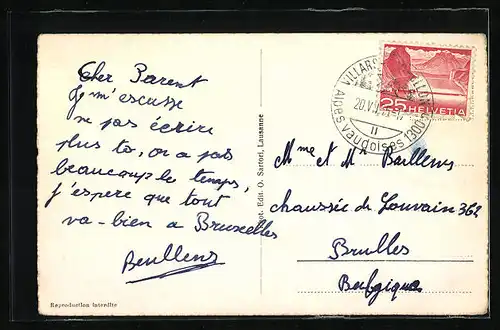 Cher Parent
Je m'escusse
ne pas écrire
plus to, on a pas
beaucoup le temps,
j'espere que tout
va-bien a Bruxelles
Beullens
Reproduction interdite
Phot. Edit. O. Sartori, Lausanne
25 HELVETIA
VILLARS
Alpes vaudoises
II
Mme et Mr Beullens
chaussée de Louvain 362
Brulles
Belgique